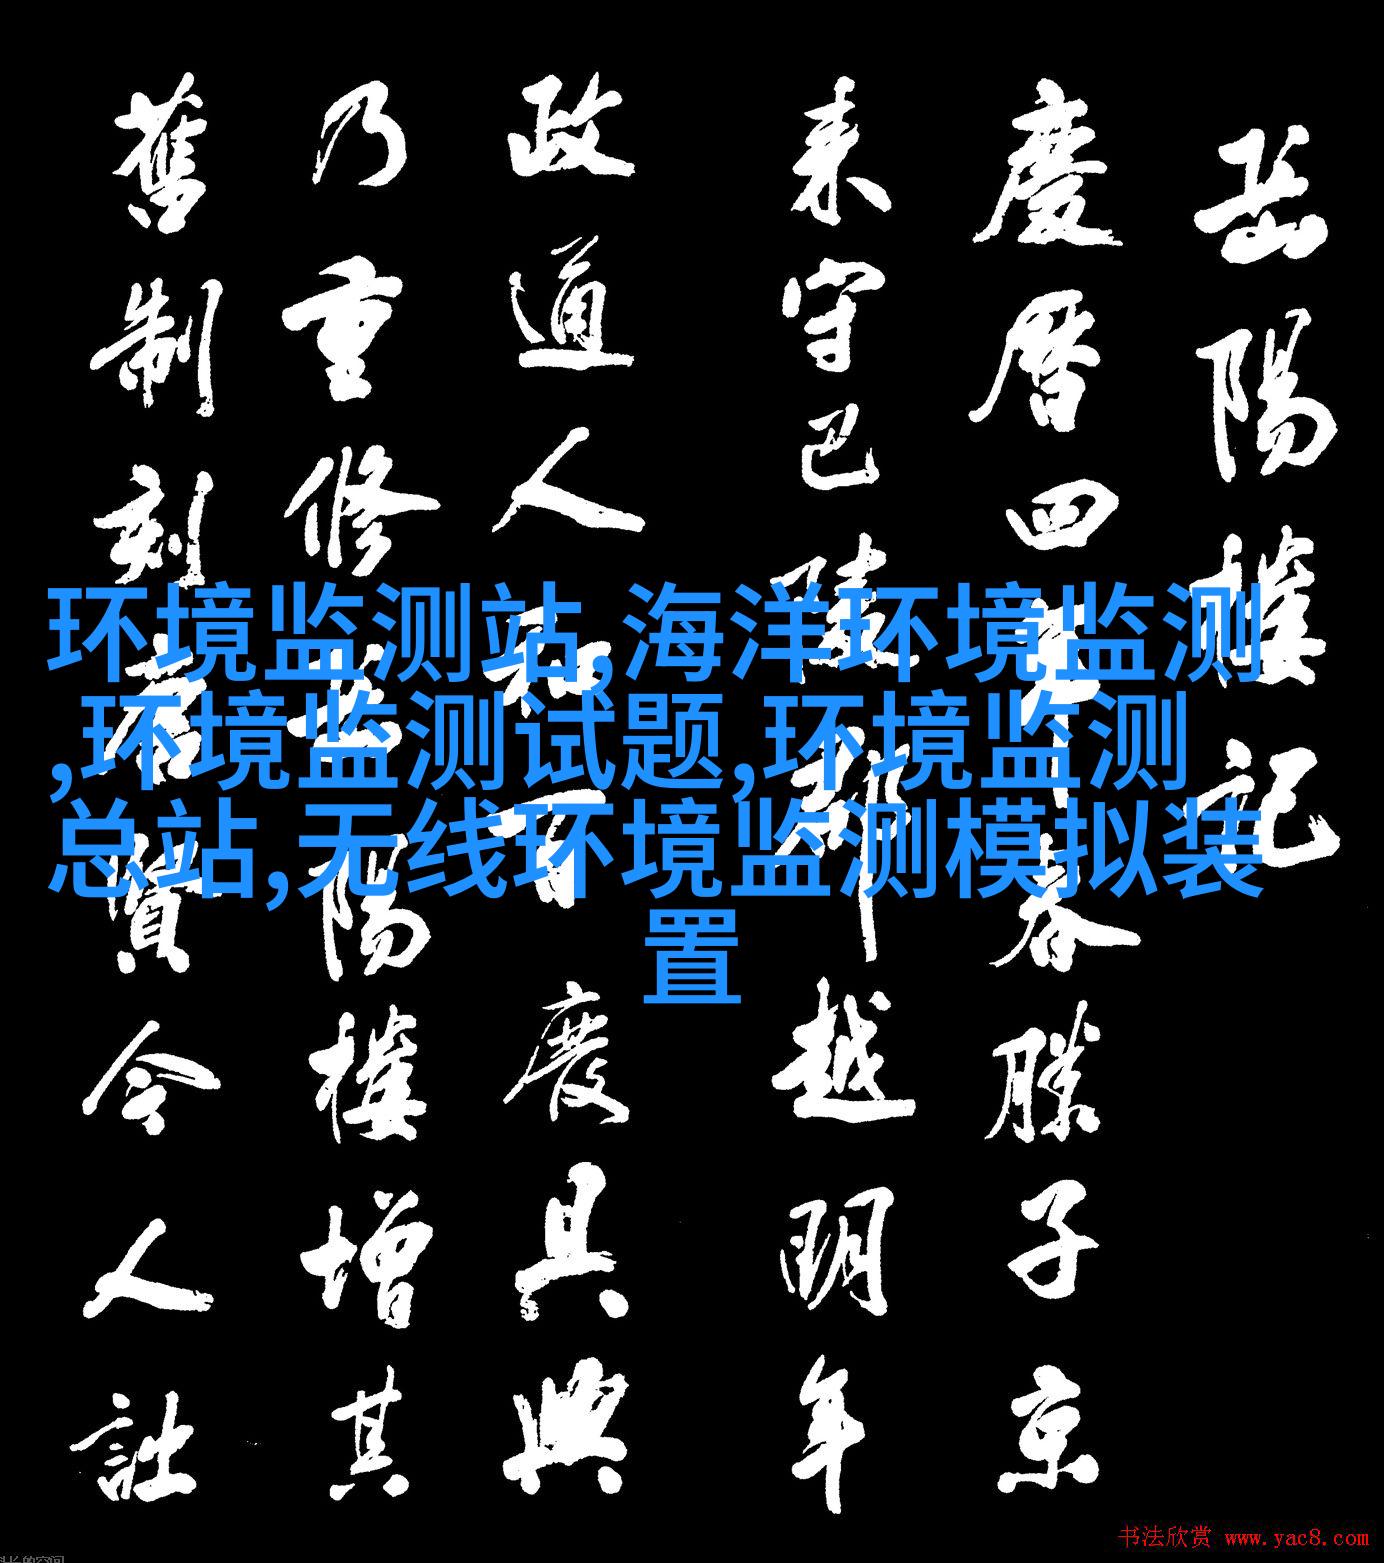 岳陽樓記
慶曆四年春滕子京
来守巴陵郡越明年
政通人和百廢具興
乃重修岳陽樓增其
舊制刻唐賢今人詩
环境监测站,海洋环境监测
,环境监测试题,环境监测
总站,无线环境监测模拟装
置
书法欣赏 www.yac8.com